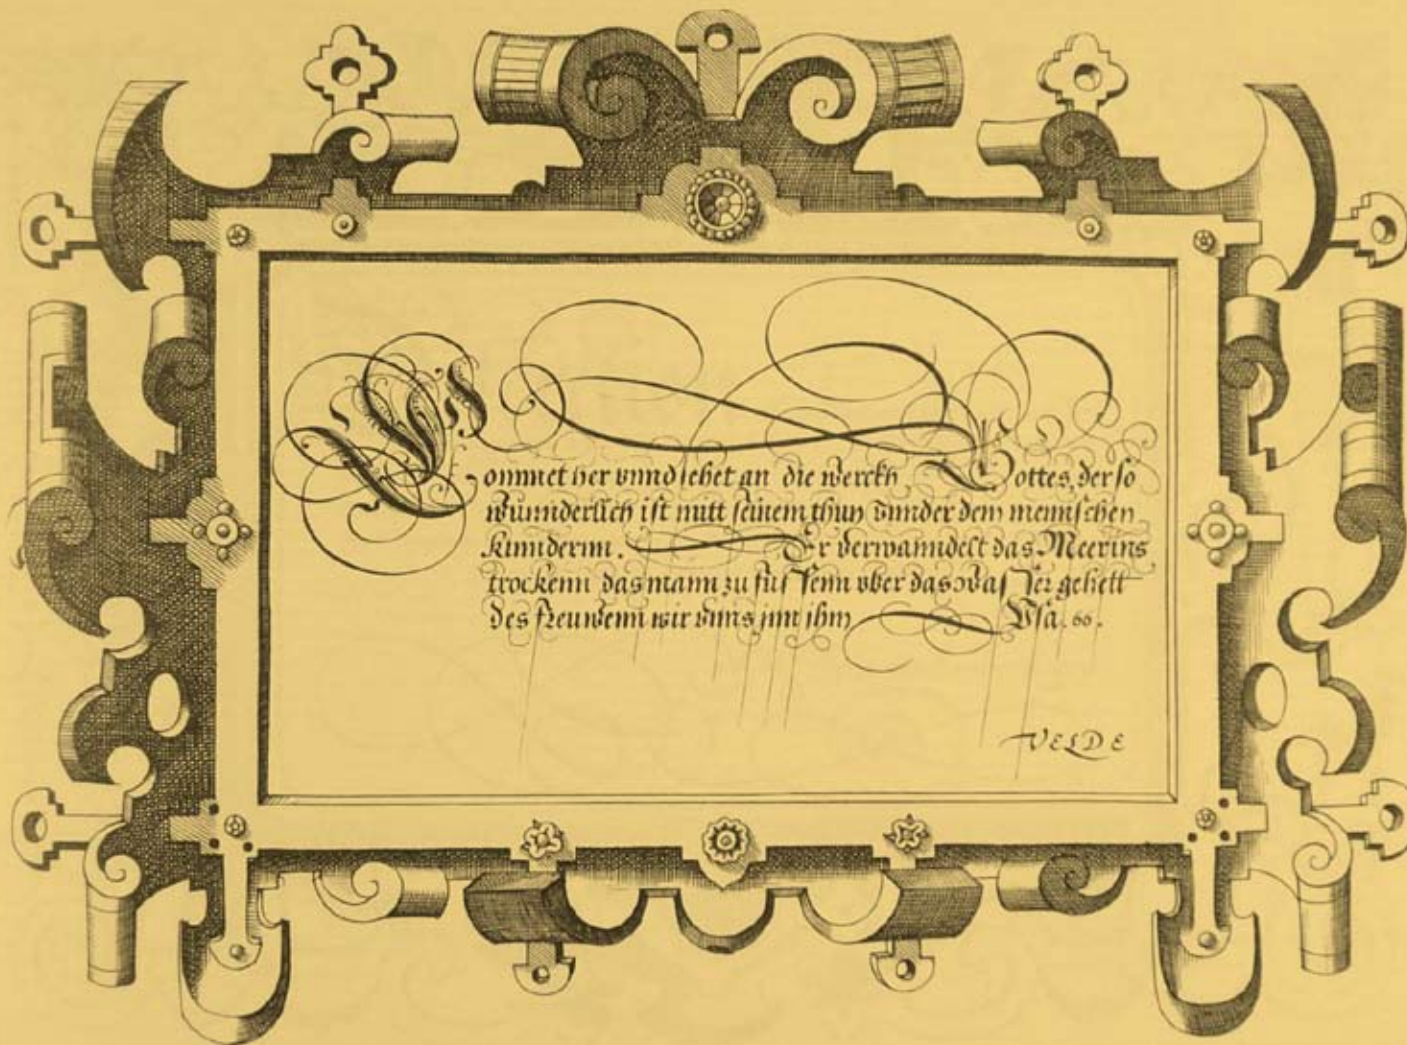 Kommet her vnnd sehet an die werckh Gottes, der so
wunnderlich ist mitt seinem thun vnnder dem mennschen
kinndernn. Er verwanndelt das Meer ins
trockenn das mann zu fussenn vber das wasser gehett
des freuwenn wir vnns inn ihm Psa. 66.
VELDE